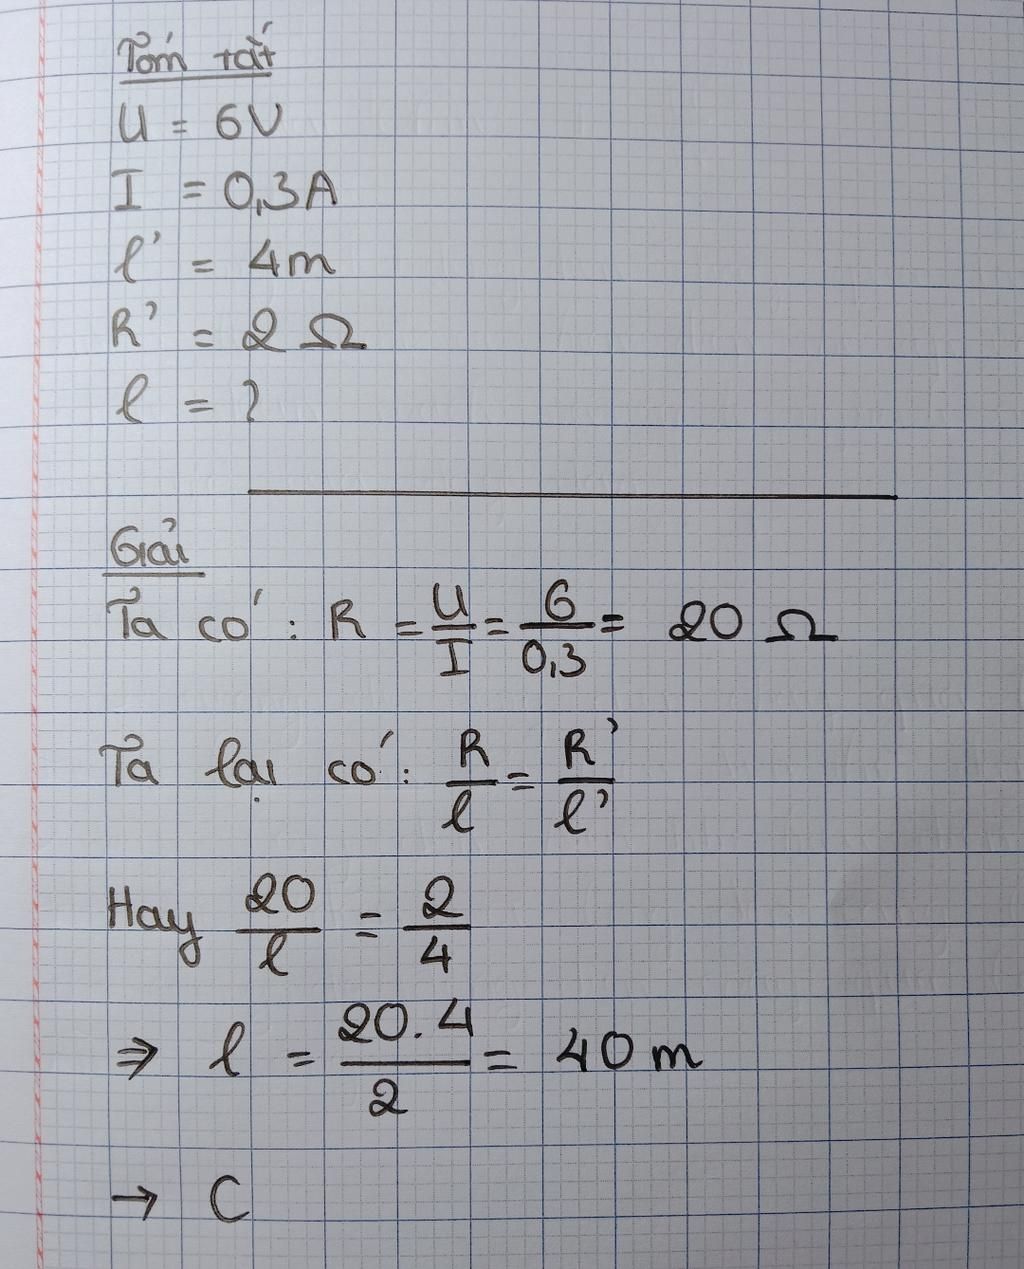 Tóm tắt
U = 6V
I = 0,3A
l' = 4m
R' = 2 Ω
l = ?
Giải
Ta có: R = U/I = 6/0,3 = 20 Ω
Ta lại có: R/l = R'/l'
Hay 20/l = 2/4
⇒ l = 20.4/2 = 40 m
→ C